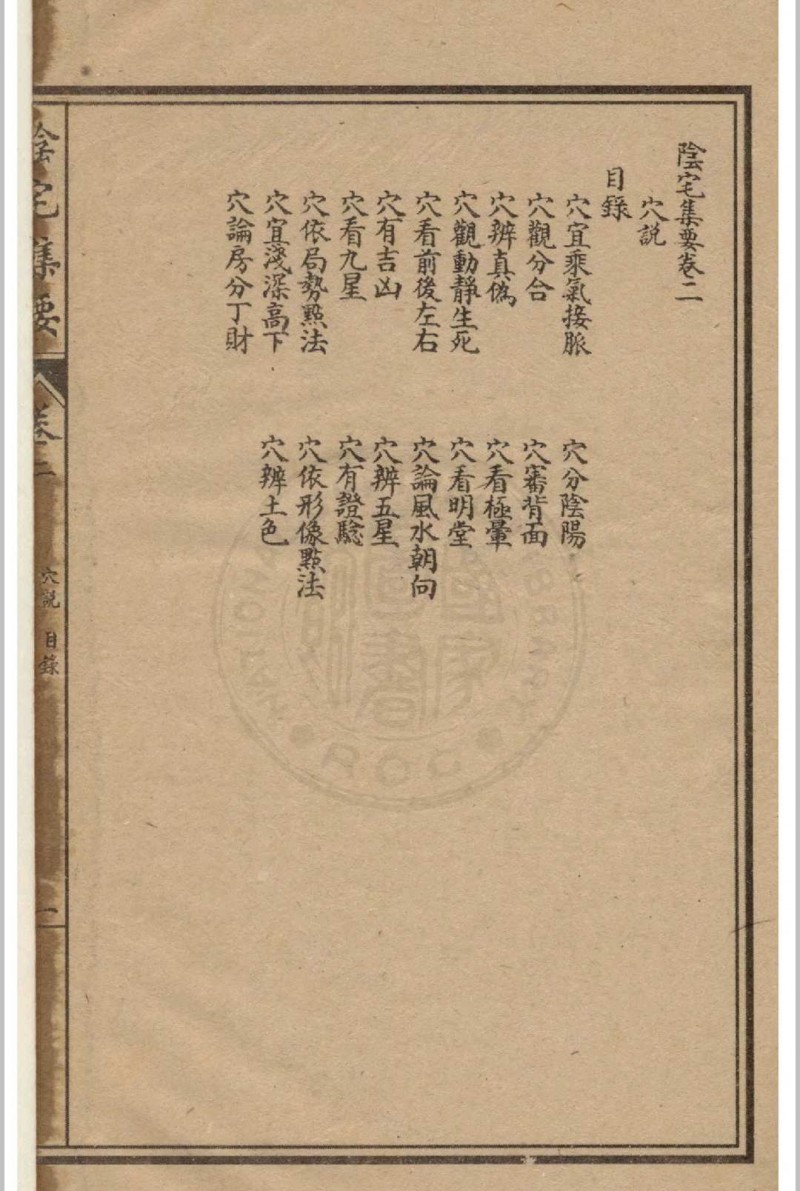 陰宅集要卷二
穴說
目錄
穴宜乘氣接脈
穴分陰陽
穴觀分合
穴審背面
穴辨真偽
穴看極暈
穴觀動靜生死
穴看明堂
穴看前後左右
穴論風水朝向
穴有吉凶
穴辨五星
穴看九星
穴有證騐
穴依局勢點法
穴依形像點法
穴宜淺深高下
穴辨土色
穴論房分丁財
陰宅集要
卷二
穴說 目錄
一
NATIONAL LIBRARY
國家圖書館
ROC